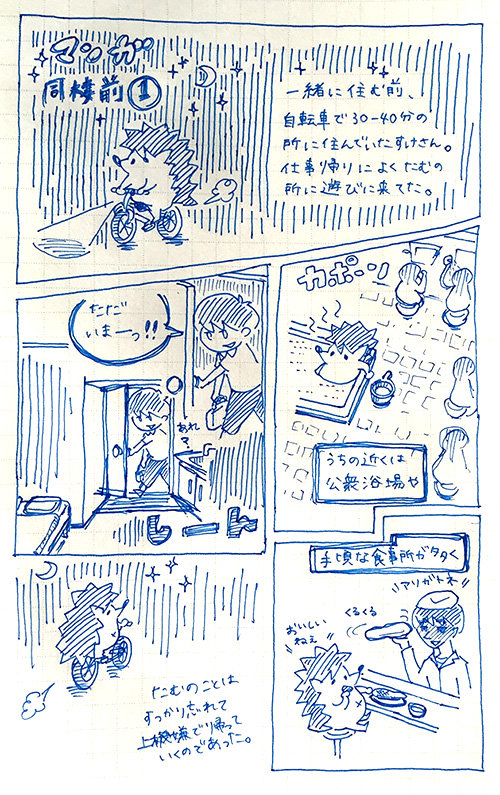 マンガ
同棲前①
一緒に住む前、
自転車で30-40分の
所に住んでいたすけさん。
仕事帰りによくたむの
所に遊びに来てた。
カポーン
うちの近くは
公衆浴場や
手頃な食事所が多く
アリガトネ
くるくる
おいしい
ねぇ
ただ
いまーっ!!
あれ
?
しーん
たむのことは
すっかり忘れて
上機嫌で帰って
いくのであった。